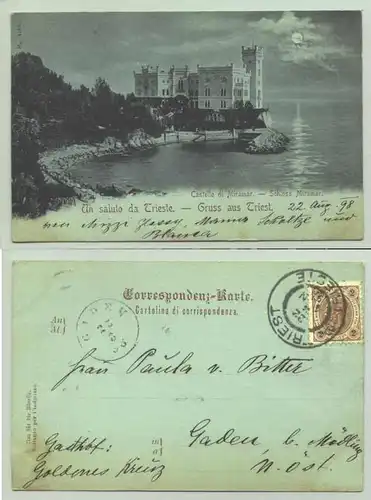 Castello di Miramar. — Schloss Miramar.
Un saluto da Trieste. — Gruss aus Triest. 22 Aug. 98
von Mizze und
Correspondenz-Karte.
Cartolina di corrispondenza.
An
A
GADEN
TRIEST
TRIESTE
Frau Paula v. Bitter
Gaden, b. Mödling
N. Öst.
Gasthof:
Goldenes Kreuz